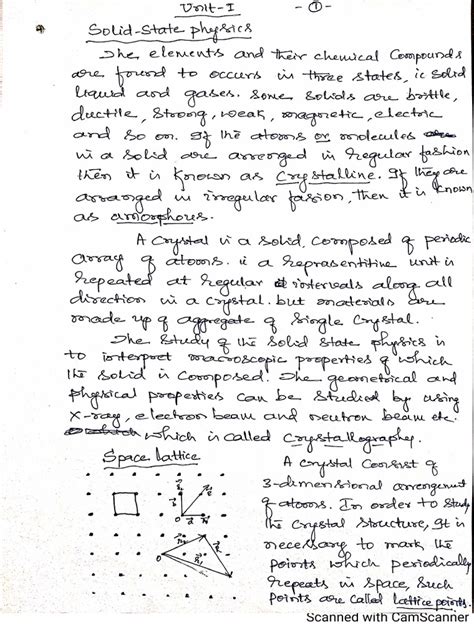 Unit-I -①-
* Solid-State physics
The elements and their chemical Compounds
are found to occurs in three states, ie Solid
liquid and gases. Some Solids are brittle,
ductile, Strong, weak, magnetic, electric
and so on. If the atoms or molecules
in a Solid are arranged in regular fashion
then it is known as Crystalline. If they are
arranged in irregular fasion, then it is known
as amorphous.
A Crystal is a solid, Composed of periodic
array of atoms. ie a Reprasentitive unit is
Repeated at Regular intervals along all
direction in a Crystal. but materials are
made up of aggregate of Single Crystal.
The Study of the Solid State physics is
to interpret macroscopic properties of which
the Solid is Composed. The geometrical and
physical properties can be Studied by using
X-ray, electron beam and neutron beam etc.
which is called Crystallography.
Space lattice
A crystal Consist of
3-dimensional arrangement
of atoms. In order to Study
the Crystal Structure, It is
necessary to mark the
points which periodically
Repeats in Space, Such
Points are Called lattice points.
Scanned with CamScanner